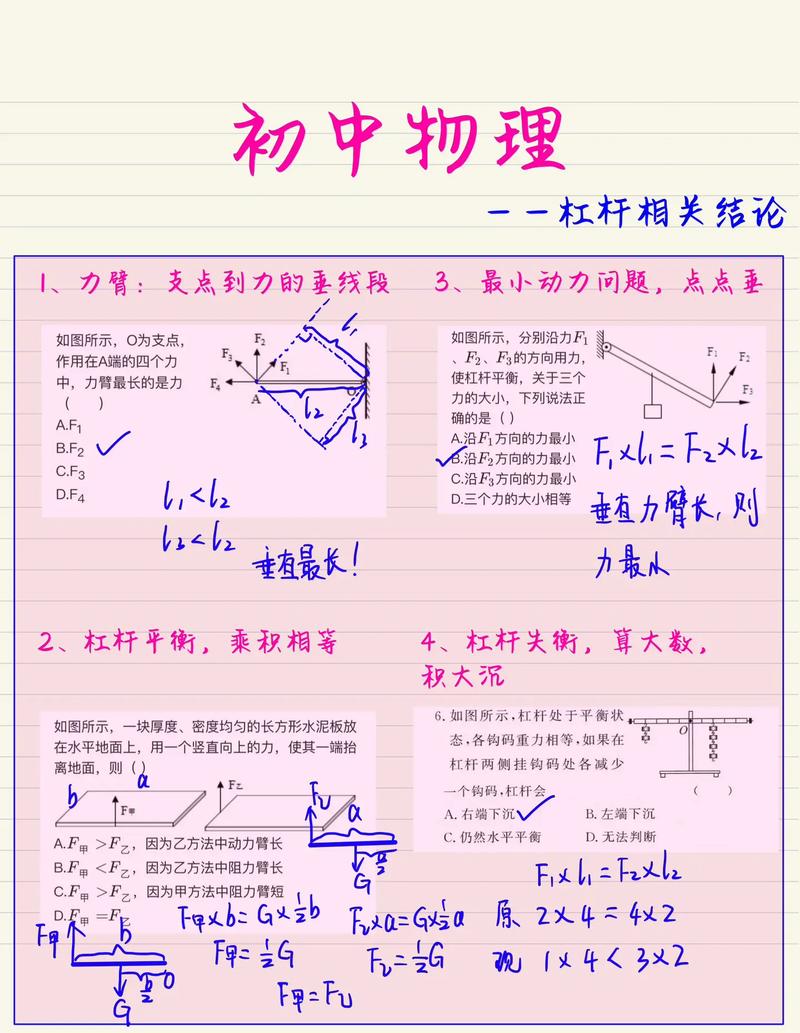 初中物理
——杠杆相关结论
1、力臂：支点到力的垂线段
如图所示，O为支点，
作用在A端的四个力
中，力臂最长的是力
（　　）
A.F₁
B.F₂
C.F₃
D.F₄
F₂
F₃
F₁
F₄
A
O
l₁
l₂
l₃
l₁<l₂
l₃<l₂
垂直最长！
3、最小动力问题，点点垂
如图所示，分别沿力F₁
、F₂、F₃的方向用力，
使杠杆平衡，关于三个
力的大小，下列说法正
确的是（ ）
A.沿F₁方向的力最小
B.沿F₂方向的力最小
C.沿F₃方向的力最小
D.三个力的大小相等
F₁
F₂
F₃
F₁×l₁=F₂×l₂
垂直力臂长，则
力最小
2、杠杆平衡，乘积相等
如图所示，一块厚度、密度均匀的长方形水泥板放
在水平地面上，用一个竖直向上的力，使其一端抬
离地面，则（ ）
a
b
F甲
F乙
A.F甲＞F乙，因为乙方法中动力臂长
B.F甲＜F乙，因为乙方法中阻力臂长
C.F甲＞F乙，因为甲方法中阻力臂短
D.F甲=F乙
F乙
a
a/2
G
F甲
b
b/2
O
G
F甲×b=G×½b
F甲=½G
F乙×a=G×½a
F乙=½G
F甲=F乙
4、杠杆失衡，算大数，
积大沉
6.如图所示,杠杆处于平衡状
态,各钩码重力相等,如果在
杠杆两侧挂钩码处各减少
一个钩码,杠杆会 （　　）
A.右端下沉 B.左端下沉
C.仍然水平平衡 D.无法判断
O
F₁×l₁=F₂×l₂
原 2×4=4×2
现 1×4<3×2